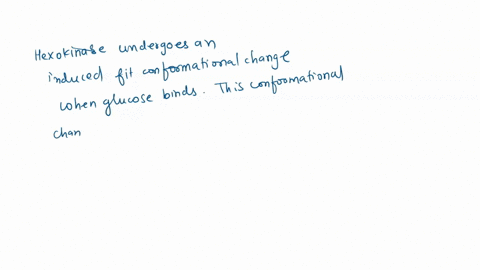 Hexokinase undergoes an
induced fit conformational change
when glucose binds. This conformational
chan